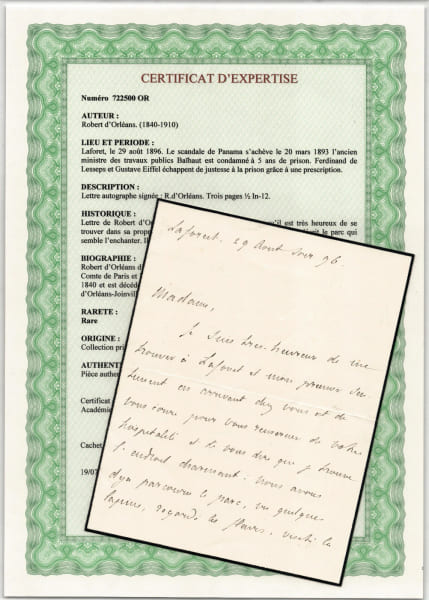 CERTIFICAT D'EXPERTISE
Numéro 722500 OR
AUTEUR :
Robert d'Orléans. (1840-1910)
LIEU ET PERIODE :
Laforet, le 29 août 1896. Le scandale de Panama s'achève le 20 mars 1893 l'ancien
ministre des travaux publics Baïhaut est condamné à 5 ans de prison. Ferdinand de
Lesseps et Gustave Eiffel échappent de justesse à la prison grâce à une prescription.
DESCRIPTION :
Lettre autographe signée : R.d'Orléans. Trois pages ½ In-12.
HISTORIQUE :
Lettre de Robert d'Or qu'il est très heureux de se
trouver dans sa prop le parc qui
semble l'enchanter. Il
BIOGRAPHIE :
Robert d'Orléans d
Comte de Paris et
1840 et est décédé
d'Orléans-Joinvill
RARETE :
Rare
ORIGINE :
Collection pri
AUTHENT
Pièce authe
Certificat
Académie
Cachet,
19/07
Laforest. 29 Aout soir 96
Madame,
Je suis très heureux de me
trouver à Laforet et mon premier sen-
timent en arrivant chez vous est de
vous écrire pour vous remercier de votre
hospitalité et de vous dire que je trouve
l'endroit charmant : nous avons
déja parcouru le parc, vu quelques
lapins, regardé les fleurs, visité la